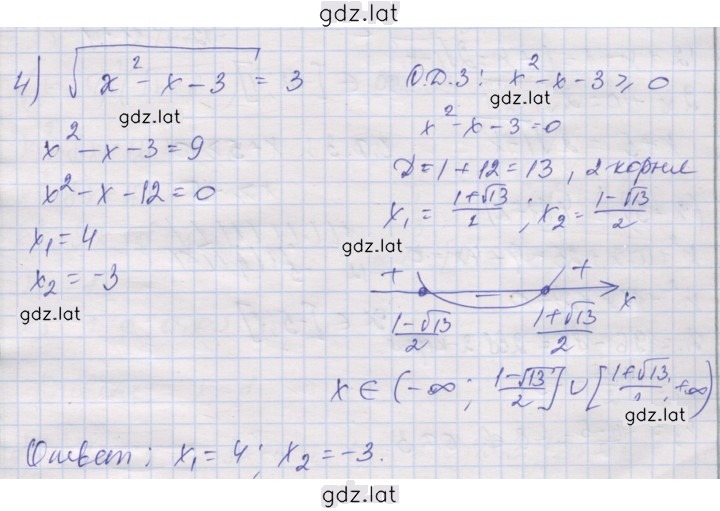 gdz.lat
4) √(x² - x - 3) = 3
gdz.lat
x² - x - 3 = 9
x² - x - 12 = 0
x₁ = 4
x₂ = -3
gdz.lat
О.Д.З: x² - x - 3 ≥ 0
gdz.lat
x² - x - 3 = 0
D = 1 + 12 = 13, 2 корня
x₁ = (1+√13)/2; x₂ = (1-√13)/2
gdz.lat
+ - + x
(1-√13)/2 (1+√13)/2
x ∈ (-∞; (1-√13)/2] ∪ [(1+√13)/2; +∞)
gdz.lat
Ответ: x₁ = 4; x₂ = -3.
gdz.lat